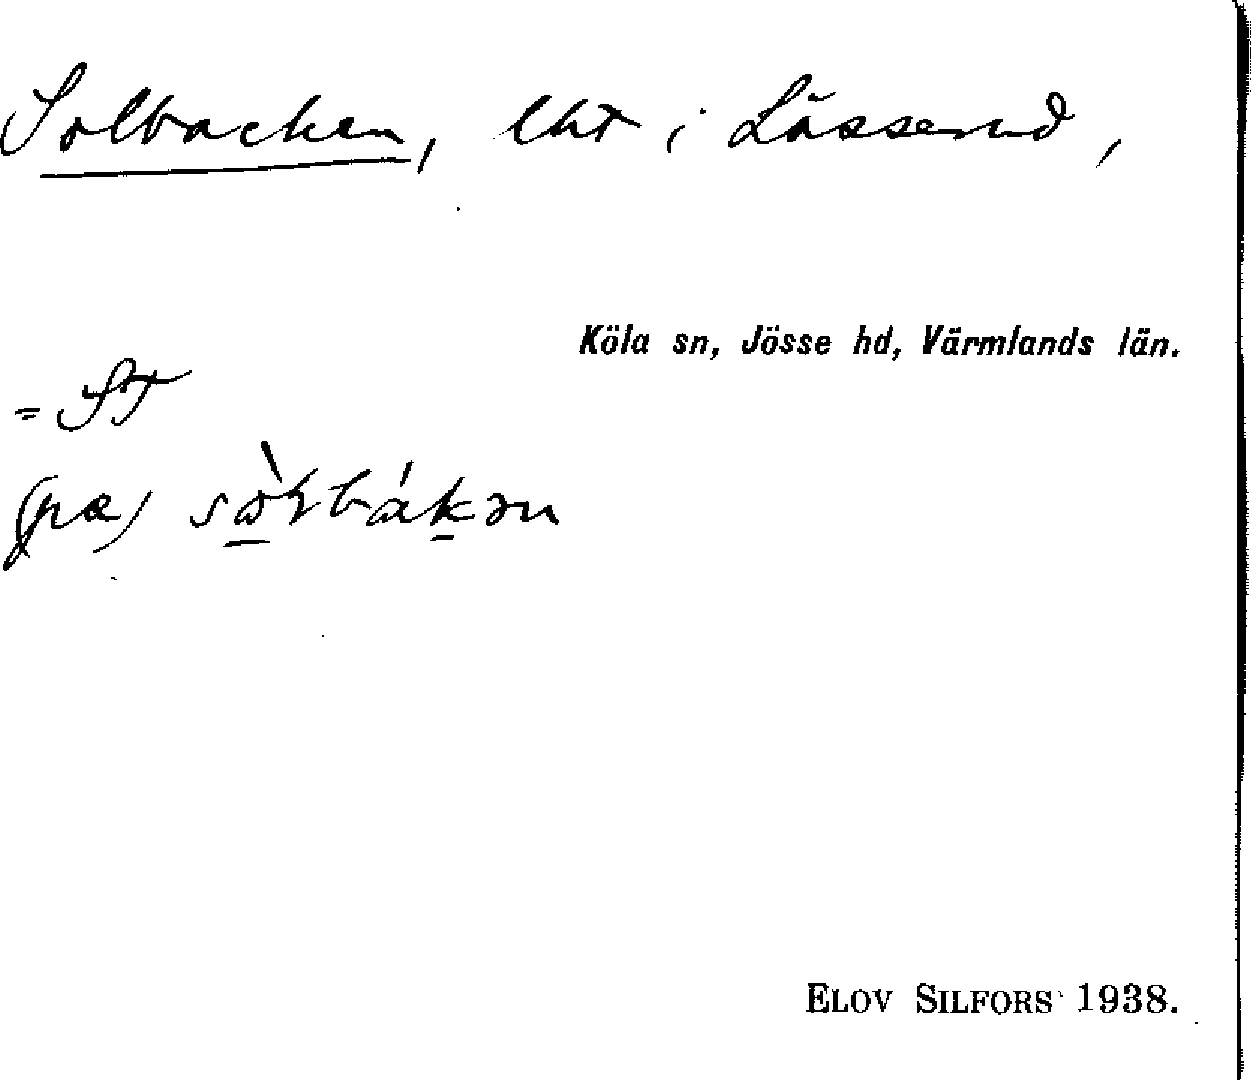 Solbacken, lht i Lässerud,
Köla sn, Jösse hd, Värmlands län.
= ST
(pæ)
ELOV SILFORS 1938.